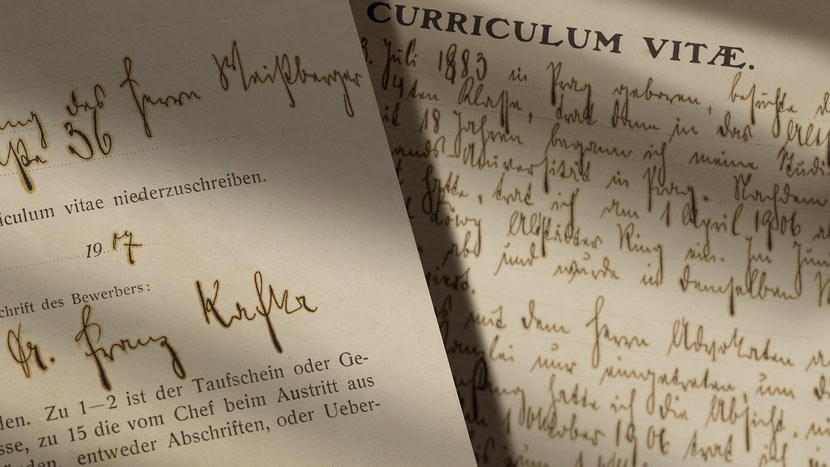 ung des Herrn Weißberger
ße 36
iculum vitae niederzuschreiben.
19
schrift des Bewerbers:
Dr. Franz Kafka
den. Zu 1—2 ist der Taufschein oder Ge-
sse, zu 15 die vom Chef beim Austritt aus
entweder Abschriften, oder Ueber-
CURRICULUM VITÆ.
3. Juli 1883 in Prag geboren, besuchte d
4ten Klasse, trat dann in das
it 18 Jahren begann ich meine Studi
ands-Universität in Prag. Nachdem
hatte, trat ich am 1 April 1906
Löwy Altstädter Ring ein. Im Jun
ab und wurde in demselben
mit dem Herrn Advokaten
anzlei nur eingetreten, um d
hatte ich die Absicht,
1 Oktober 1906 trat ich